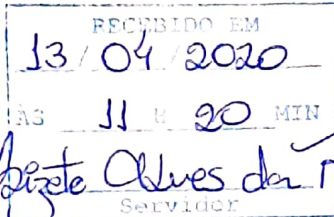 RECEBIDO EM
13/04/2020
ÀS 11 H 20 MIN
Alves da
Servidor